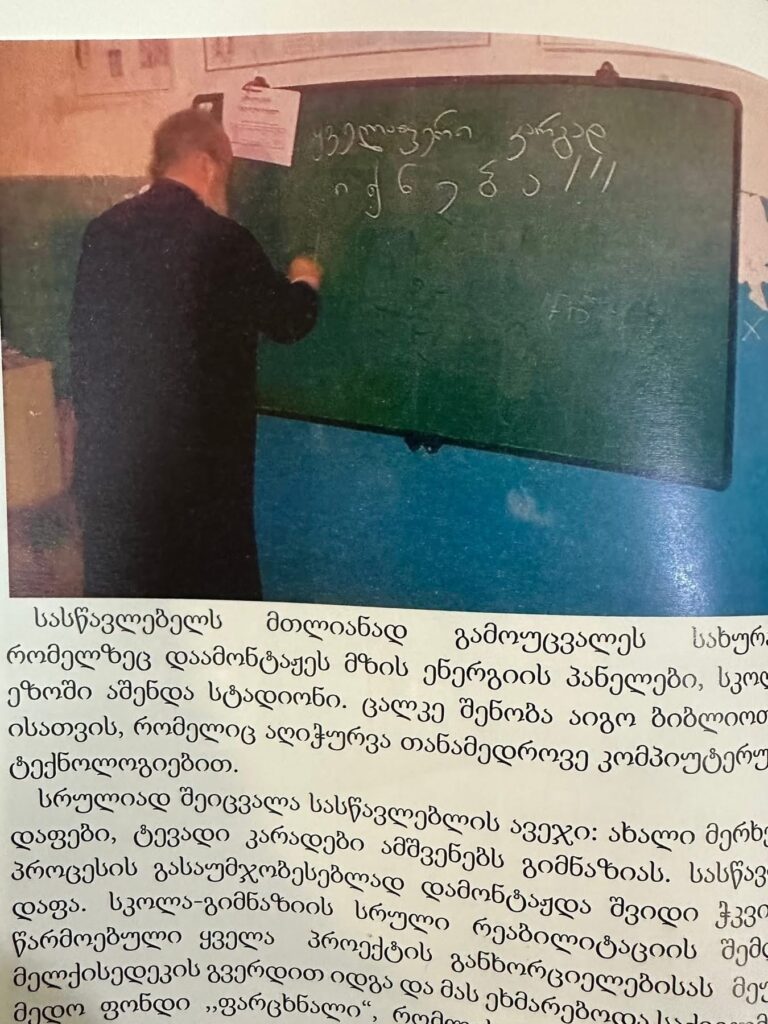 ყველაფერი კარგად
იქნება!!!
სასწავლებელს მთლიანად გამოუცვალეს
რომელზეც დაამონტაჟეს მზის ენერგიის პანელები,
ეზოში აშენდა სტადიონი. ცალკე შენობა აიგო
ისათვის, რომელიც აღიჭურვა თანამედროვე
ტექნოლოგიებით.
სრულიად შეიცვალა სასწავლებლის ავეჯი: ახალი
დაფები, ტევადი კარადები ამშვენებს გიმნაზიას.
პროცესის გასაუმჯობესებლად დამონტაჟდა შვიდი
დაფა. სკოლა-გიმნაზიის სრული რეაბილიტაციის
წარმოებული ყველა პროექტის განხორციელებისას
მელქისედეკის გვერდით იდგა და მას ეხმარებოდა
მედო ფონდი ,,ფარცხნალი“,